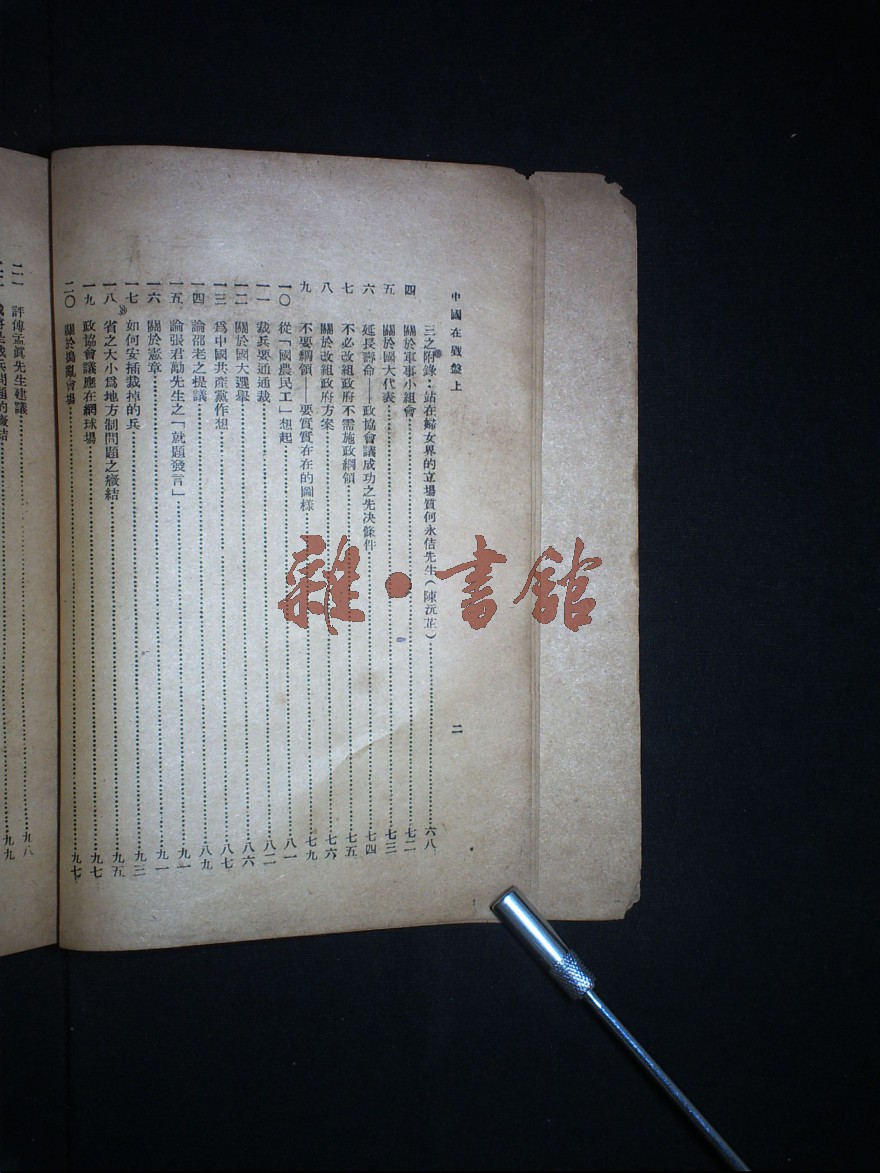 中國在戥盤上
二
三之附錄：站在婦女界的立場質何永佶先生（陳沅芷）……六八
四 關於軍事小組會……七二
五 關於國大代表……七三
六 延長壽命——政協會議成功之先决條件……七四
七 不必改組政府不需施政綱領……七五
八 關於改組政府方案……七六
九 不要綱領——要實實在在的圖樣……七九
一〇 從「國農民工」想起……八一
一一 裁兵要通通裁……八二
一二 關於國大選舉……八六
一三 爲中國共產黨作想……八七
一四 論邵老之提議……八九
一五 論張君勱先生之「就題發言」……九一
一六 關於憲章……九一
一七 如何安插裁掉的兵……九三
一八 省之大小爲地方制問題之癥結……九五
一九 政協會議應在網球場……九七
二〇 關於搗亂會場……九七
二一 評傅孟眞先生建議……九八
兵問題的癥結……九九
雜·書館